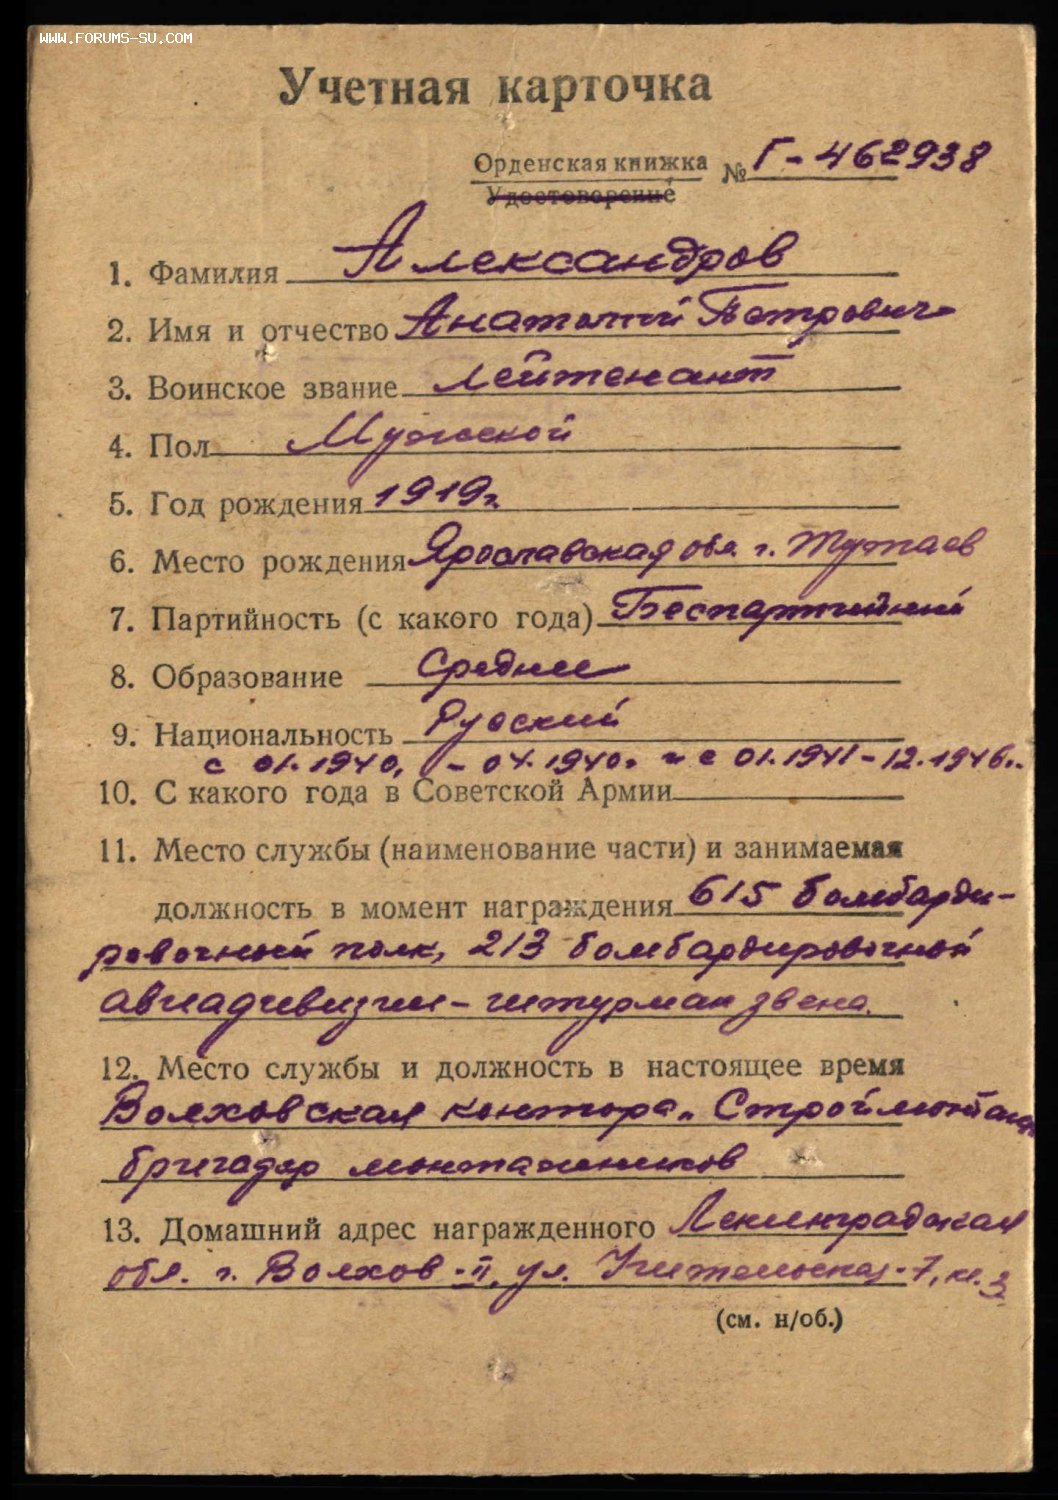 WWW.FORUMS-SU.COM
Учетная карточка
Орденская книжка № Г-462938
Удостоверение
1. Фамилия Александров
2. Имя и отчество Анатолий Петрович
3. Воинское звание лейтенант
4. Пол Мужской
5. Год рождения 1919 г.
6. Место рождения Ярославская обл. г. Тутаев
7. Партийность (с какого года) Беспартийный
8. Образование среднее
9. Национальность Русский
с 01.1940, - 04.1940. и с 01.1941 - 12.1946г.
10. С какого года в Советской Армии
11. Место службы (наименование части) и занимаемая
должность в момент награждения 615 бомбарди-
ровочный полк, 213 бомбардировочной
авиадивизии - штурман звена.
12. Место службы и должность в настоящее время
Волховская контора "Строймонтаж"
бригадир монтажников
13. Домашний адрес награжденного Ленинградская
обл. г. Волхов-II, ул. Учительская-7, кв. 3
(см. н/об.)